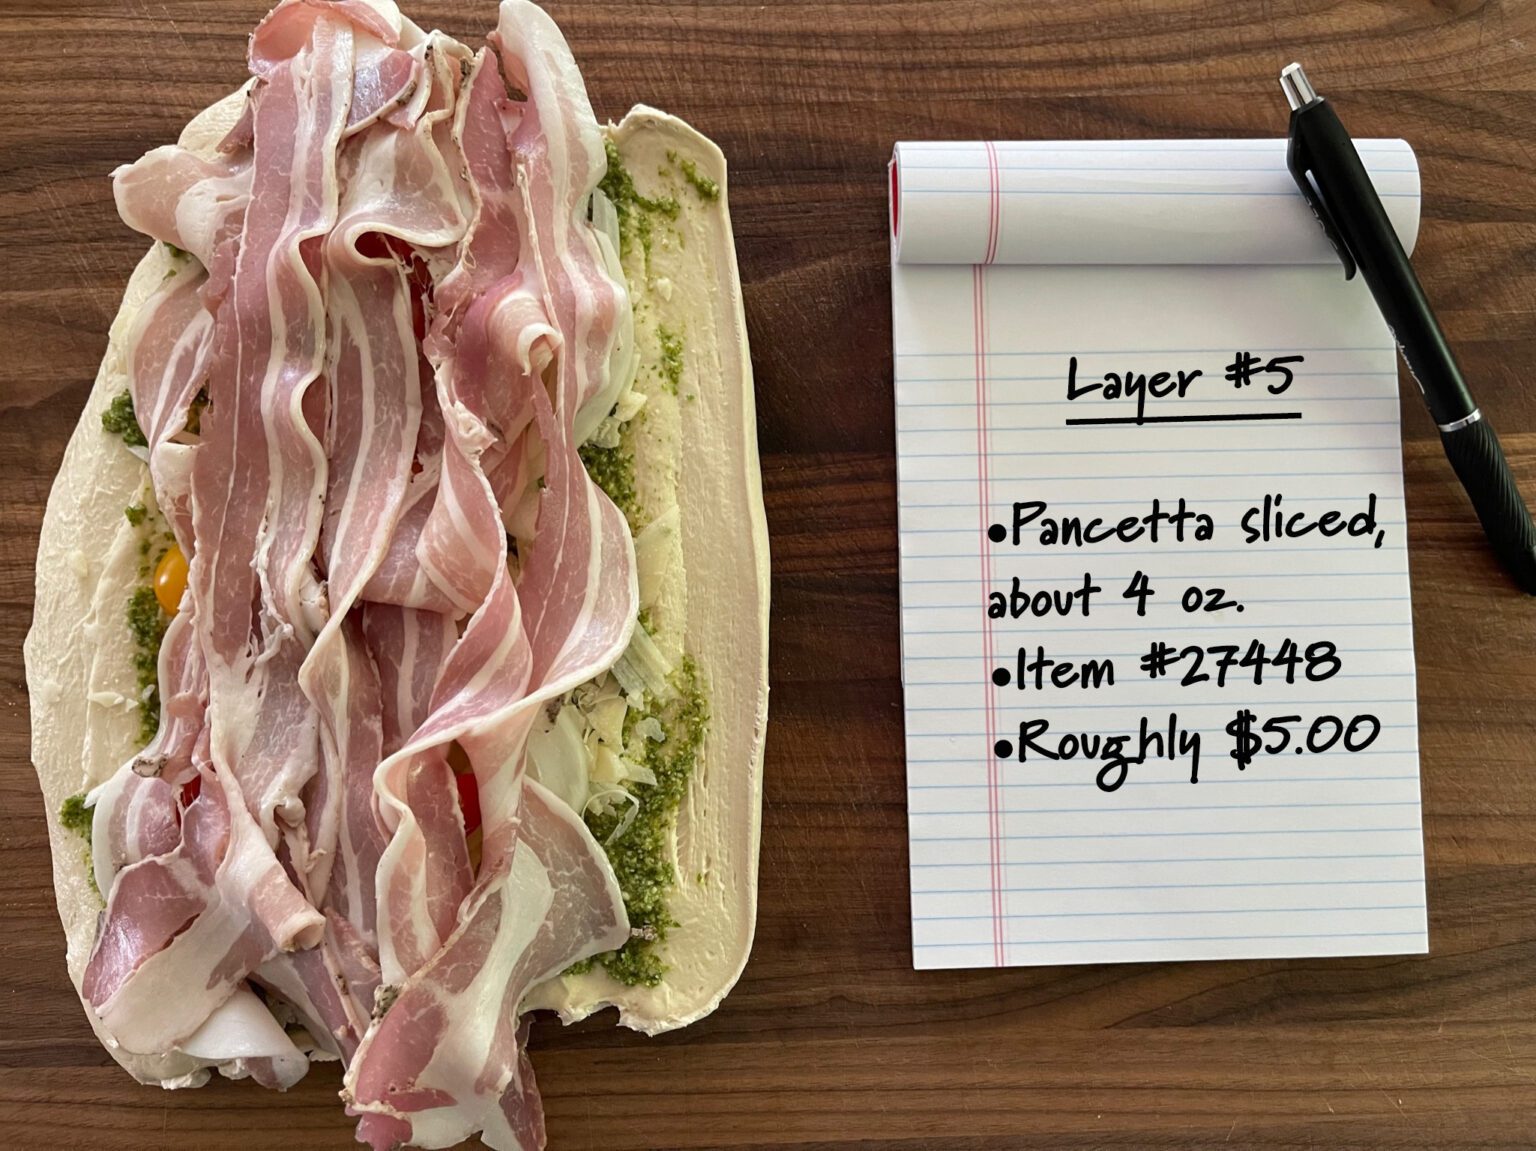 Layer #5
•Pancetta sliced,
about 4 oz.
•Item #27448
•Roughly $5.00